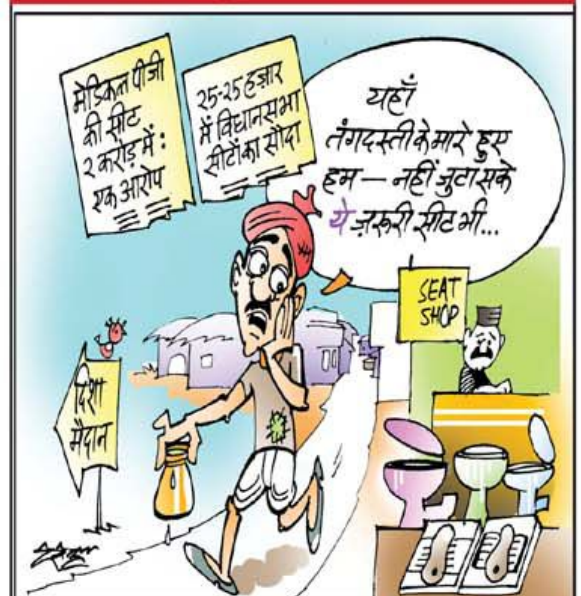 मेडिकल पीजी
की सीट
२ करोड़ में :
एक आरोप
२५-२५ हज़ार
में विधानसभा
सीटों का सौदा
यहाँ
तंगदस्ती के मारे हुए
हम — नहीं जुटा सके
ये ज़रूरी सीट भी...
SEAT
SHOP
दिशा
मैदान